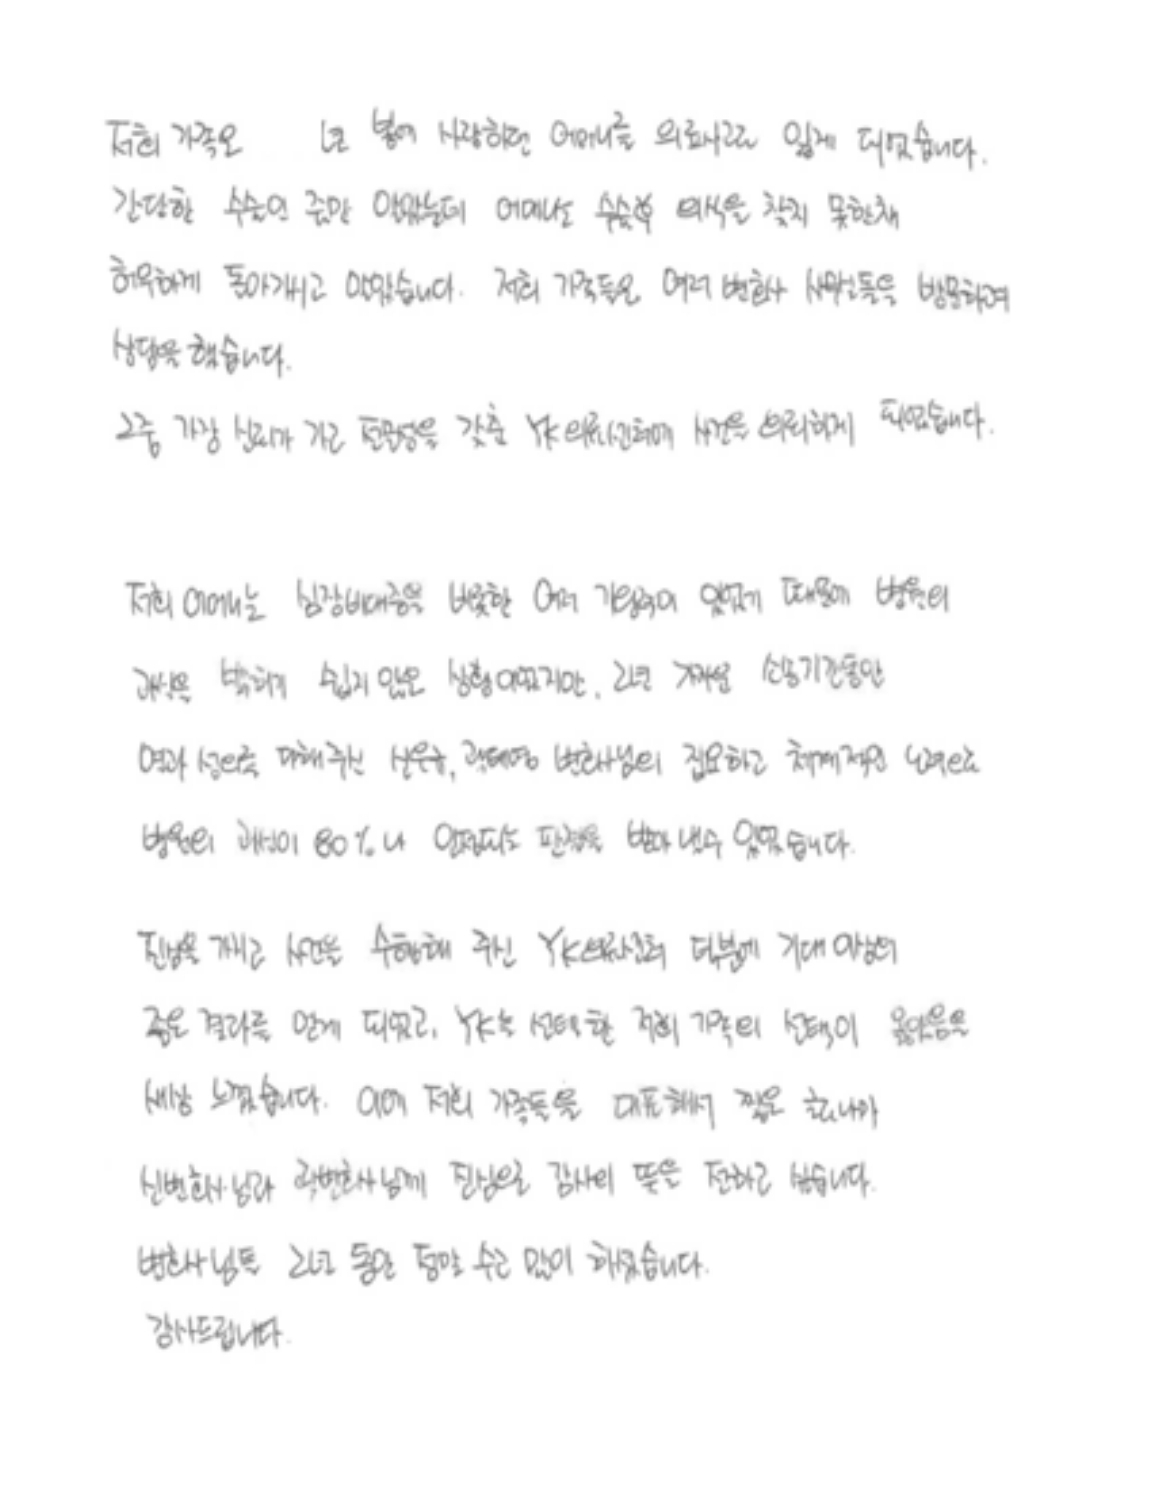 저희 가족은 년 봄에 사랑하던 어머니를 의료사고로 잃게 되었습니다.
간단한 수술인 줄만 알았는데 어머니는 수술후 의식을 찾지 못한채
허무하게 돌아가시고 말았습니다. 저희 가족들은 여러 변호사 사무실들을 방문하여
상담을 했습니다.
그중 가장 신뢰가 가고 전문성을 갖춘 YK의료사고센터에 사건을 의뢰하게 되었습니다.
저희 어머니는 심장비대증을 비롯한 여러 기왕력이 있었기 때문에 병원의
과실을 밝히기 쉽지 않은 상황이었지만, 2년 가까운 소송기간동안
열과 성의를 다해주신 신은규, 곽태영 변호사님의 집요하고 체계적인 노력으로
병원의 과실이 80%나 인정되는 판결을 받아 낼수 있었습니다.
진심을 가지고 사건을 수행해 주신 YK의료사고센터 덕분에 기대 이상의
좋은 결과를 얻게 되었고, YK를 선택한 저희 가족의 선택이 옳았음을
새삼 느꼈습니다. 이에 저희 가족들을 대표해서 짧은 글로나마
신변호사님과 곽변호사님께 진심으로 감사의 뜻을 전하고 싶습니다.
변호사님들 2년 동안 정말 수고 많이 하셨습니다.
감사드립니다.